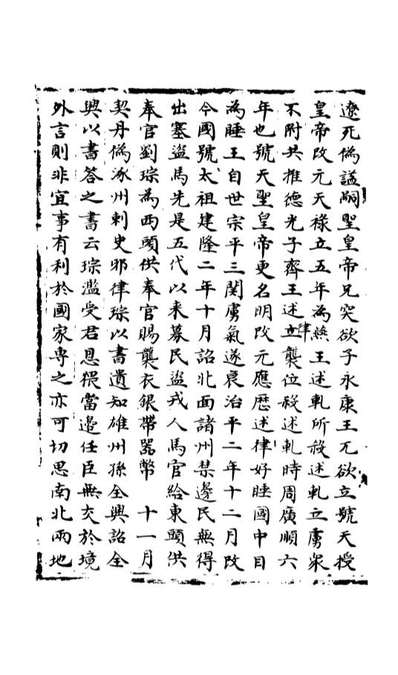 遼死偽謚嗣聖皇帝兄突欲子永康王兀欲立號天授
皇帝改元天禄立五年為燕王述軋所殺述軋立虜衆
不附共推德光子齊王述律襲位殺述軋時周廣順六
年也號天聖皇帝更名明改元應歴述律好睡國中目
為睡王自世宗平三関虜氣遂衰治平二年十二月改
今國號太祖建隆二年十月詔北面諸州禁邊民無得
出塞盜馬先是五代以来募民盜戎人馬官給東頭供
奉官劉琮為西頭供奉官賜襲衣銀帶器幣 十一月
契丹偽涿州刺史邪律琮以書遺知雄州孫全興詔全
興以書答之書云琮濫受君恩猥當邉任臣無交於境
外言則非宜事有利於國家専之亦可切思南北兩地